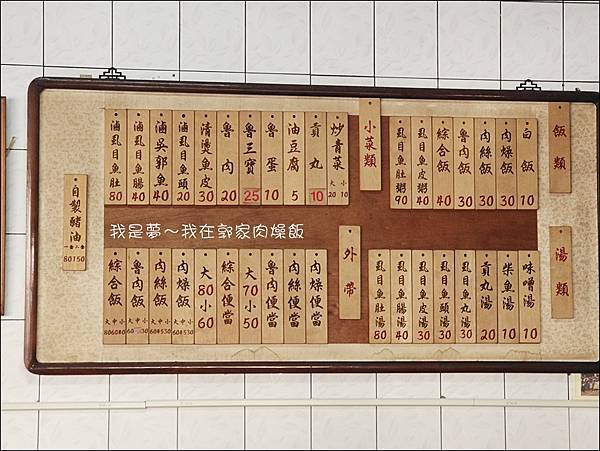 飯類
白飯 10
肉燥飯 30
肉絲飯 30
魯肉飯 30
綜合飯 40
虱目魚皮粥 40
虱目魚肚粥 90
小菜類
炒青菜 大20 小10
貢丸 10
油豆腐 5
魯蛋 10
魯三寶 25
魯肉 20
清燙魚皮 30
滷虱目魚頭 20
滷吳郭魚 40
滷虱目魚腸 40
滷虱目魚肚 80
自製豬油
60 150
我是夢～我在郭家肉燥飯
湯類
味噌湯 10
柴魚湯 10
貢丸湯 20
虱目魚丸湯 30
虱目魚頭湯 30
虱目魚皮湯 30
虱目魚腸湯 40
虱目魚肚湯 80
外帶
肉燥便當
肉絲便當
魯肉便當
大70 小50
綜合便當
大80 小60
肉燥飯 大中小
肉絲飯 大中小
魯肉飯 大中小
綜合飯 大中小